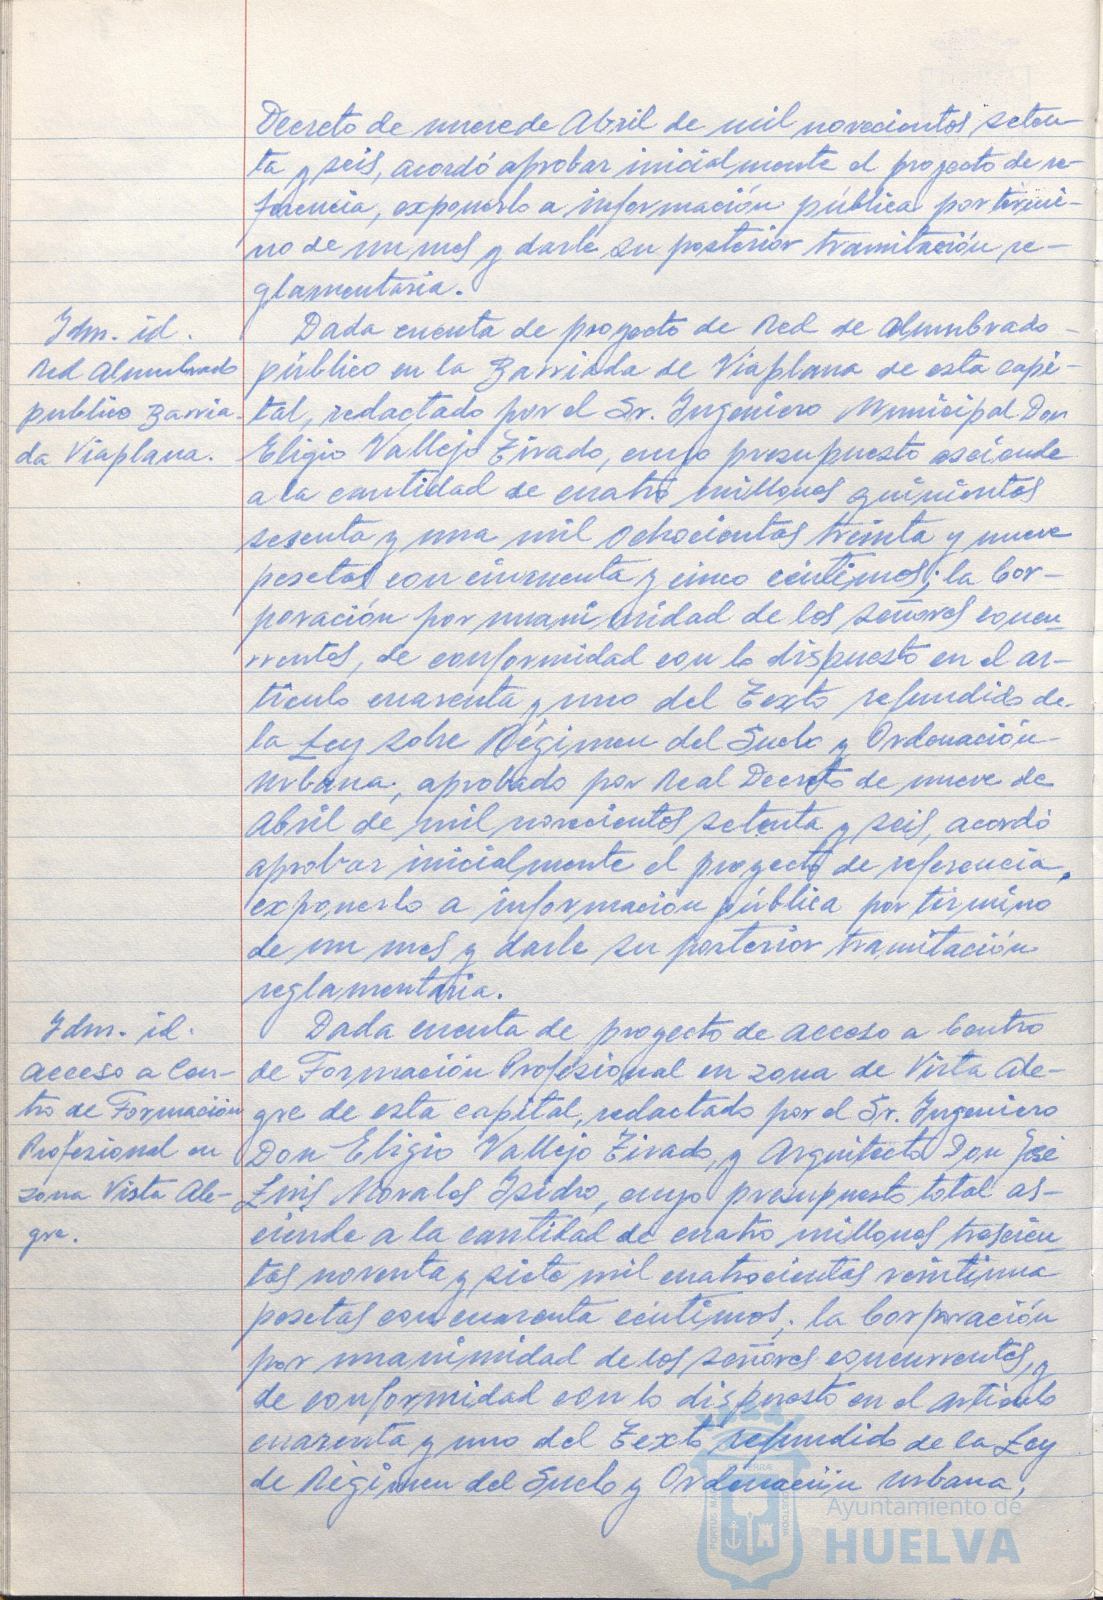 Decreto de nueve de Abril de mil novecientos seten-
ta y seis, acordó aprobar inicialmente el proyecto de re-
ferencia, exponerlo a información pública por térmi-
no de un mes y darle su posterior tramitación re-
glamentaria.
Idm. id.
Red Alumbrado
publico Barria-
da Viaplana.
Dada cuenta de proyecto de Red de Alumbrado
público en la Barriada de Viaplana de esta capi-
tal, redactado por el Sr. Ingeniero Municipal Don
Eligio Vallejo Tirado, cuyo presupuesto asciende
a la cantidad de cuatro millones quinientos
sesenta y una mil ochocientas treinta y nueve
pesetas con cincuenta y cinco céntimos; la Cor-
poración por unanimidad de los señores concu-
rrentes, de conformidad con lo dispuesto en el ar-
tículo cuarenta y uno del Texto refundido de
la Ley sobre Régimen del Suelo y Ordenación
Urbana, aprobado por Real Decreto de nueve de
Abril de mil novecientos setenta y seis, acordó
aprobar inicialmente el proyecto de referencia,
exponerlo a información pública por término
de un mes y darle su posterior tramitación
reglamentaria.
Idm. id.
Acceso a Cen-
tro de Formación
Profesional en
zona Vista Ale-
gre.
Dada cuenta de proyecto de acceso a Centro
de Formación Profesional en zona de Vista Ale-
gre de esta capital, redactado por el Sr. Ingeniero
Don Eligio Vallejo Tirado, y Arquitecto Don José
Luis Morales Isidro, cuyo presupuesto total as-
ciende a la cantidad de cuatro millones trescien-
tas noventa y siete mil cuatrocientas veintiuna
pesetas con cuarenta céntimos; la Corporación
por unanimidad de los señores concurrentes, y
de conformidad con lo dispuesto en el artículo
cuarenta y uno del Texto refundido de la Ley
de Régimen del Suelo y Ordenación Urbana,
Ayuntamiento de
HUELVA